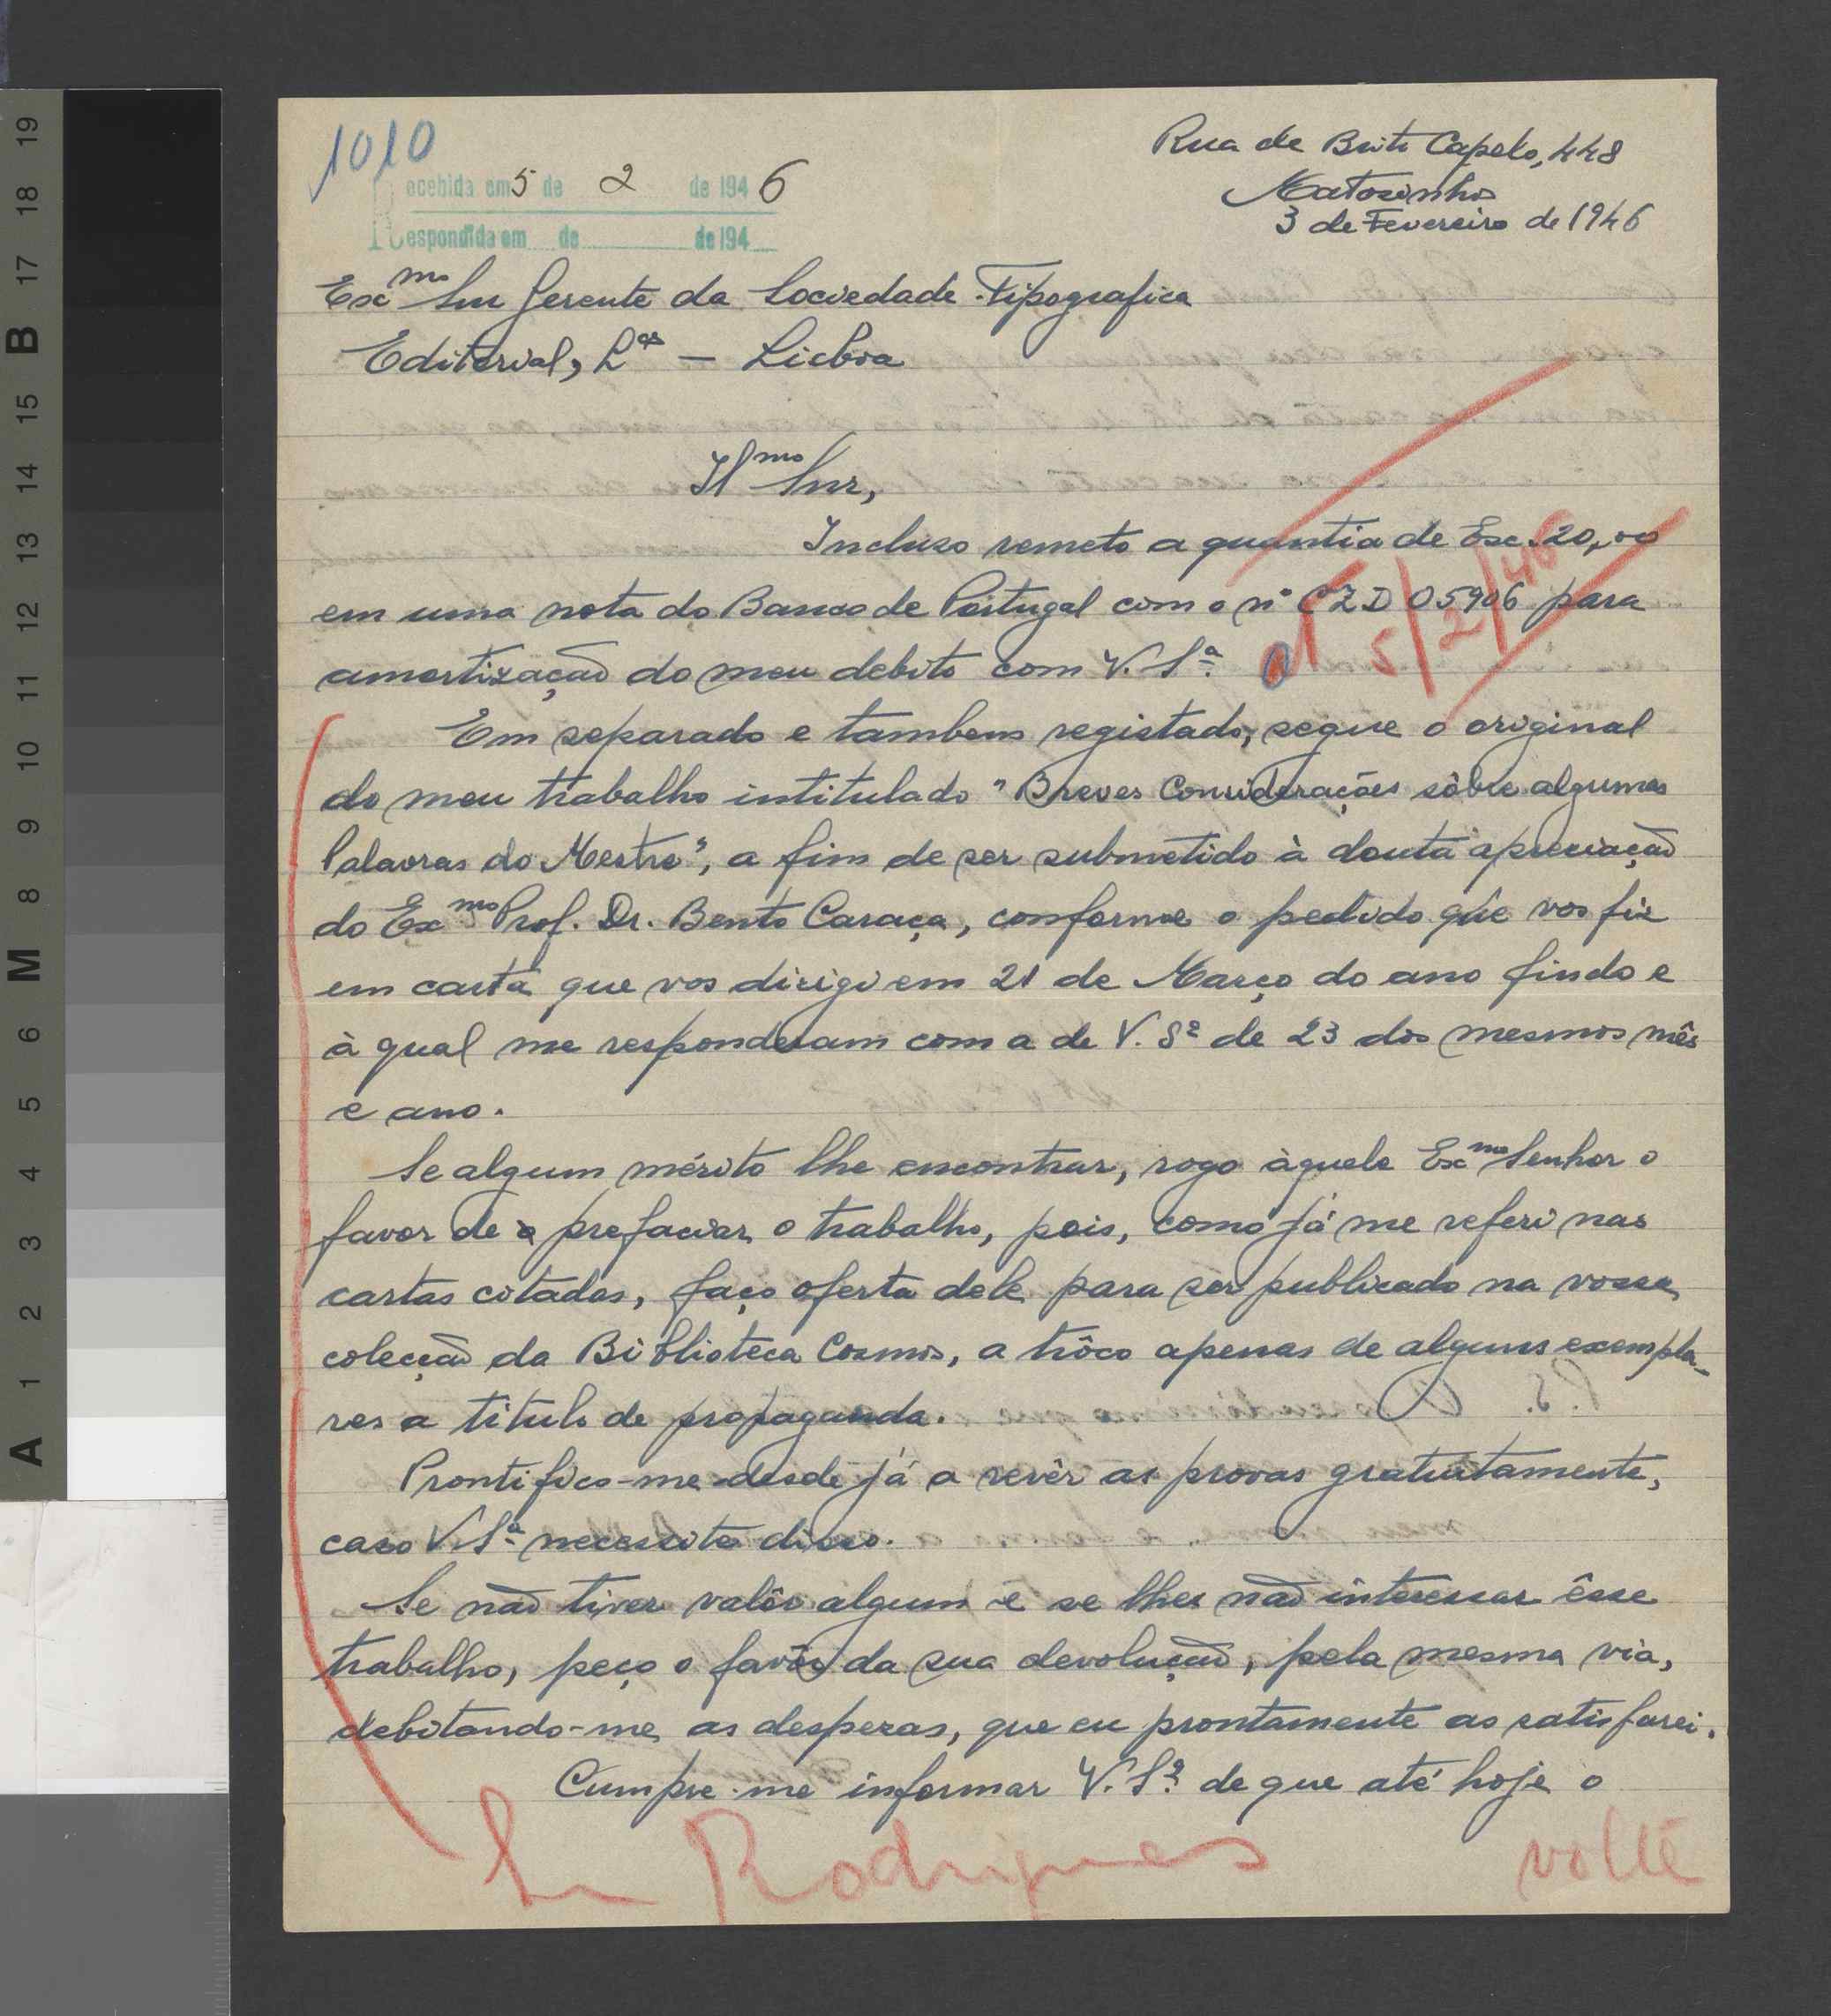 1010
Recebida em 5 de 2 de 1946
Respondida em de de 194
Rua de Brito Capelo, 448
Matosinhos
3 de Fevereiro de 1946
Exmo Snr Gerente da Sociedade Tipografica
Editorial, Lda — Lisboa
Ilmo Snr,
Incluso remeto a quantia de Esc. 20,00
em uma nota do Banco de Portugal com o nº CZD 05906 para
amortização do meu debito com V. Sª.
5/2/46
Em separado e tambem registado, segue o original
do meu trabalho intitulado "Breves Considerações sôbre algumas
Palavras do Mestre", a fim de ser submetido à douta apreciação
do Exmo Prof. Dr. Bento Caraça, conforme o pedido que vos fiz
em carta que vos dirigi em 21 de Março do ano findo e
à qual me responderam com a de V. Sª de 23 dos mesmos mês
e ano.
Se algum mérito lhe encontrar, rogo àquele Exmo Senhor o
favor de prefaciar o trabalho, pois, como já me referi nas
cartas citadas, faço oferta dele para ser publicado na vossa
colecção da Biblioteca Cosmos, a trôco apenas de alguns exempla-
res a titulo de propaganda.
Prontifico-me desde já a revêr as provas gratuitamente,
caso V. Sª necessite disso.
Se não tiver valôr algum e se lhes não interessar êsse
trabalho, peço o favôr da sua devolução, pela mesma via,
debitando-me as despezas, que eu prontamente as satisfarei.
Cumpre-me informar V. Sª. de que até hoje o
Sr Rodrigues
volte
A 1 2 3 4 5 6 M 8 9 10 11 12 13 14 15 B 17 18 19